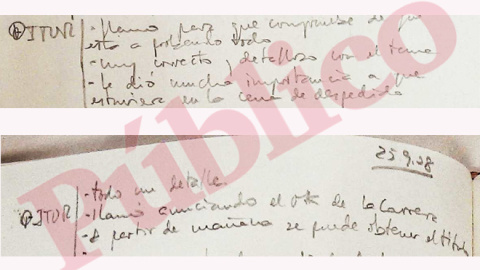 PITURI - llamó para que comprase de que
esta a probando todo
- muy correcto y detalloso con el tema
- le dió mucha importancia a que
estuviera en la cena de despedida
25.9.08
PITURI - todo un detalle.
- llamó anunciando el OK de la Carrera
- A partir de mañana se puede obtener el titulo
Público